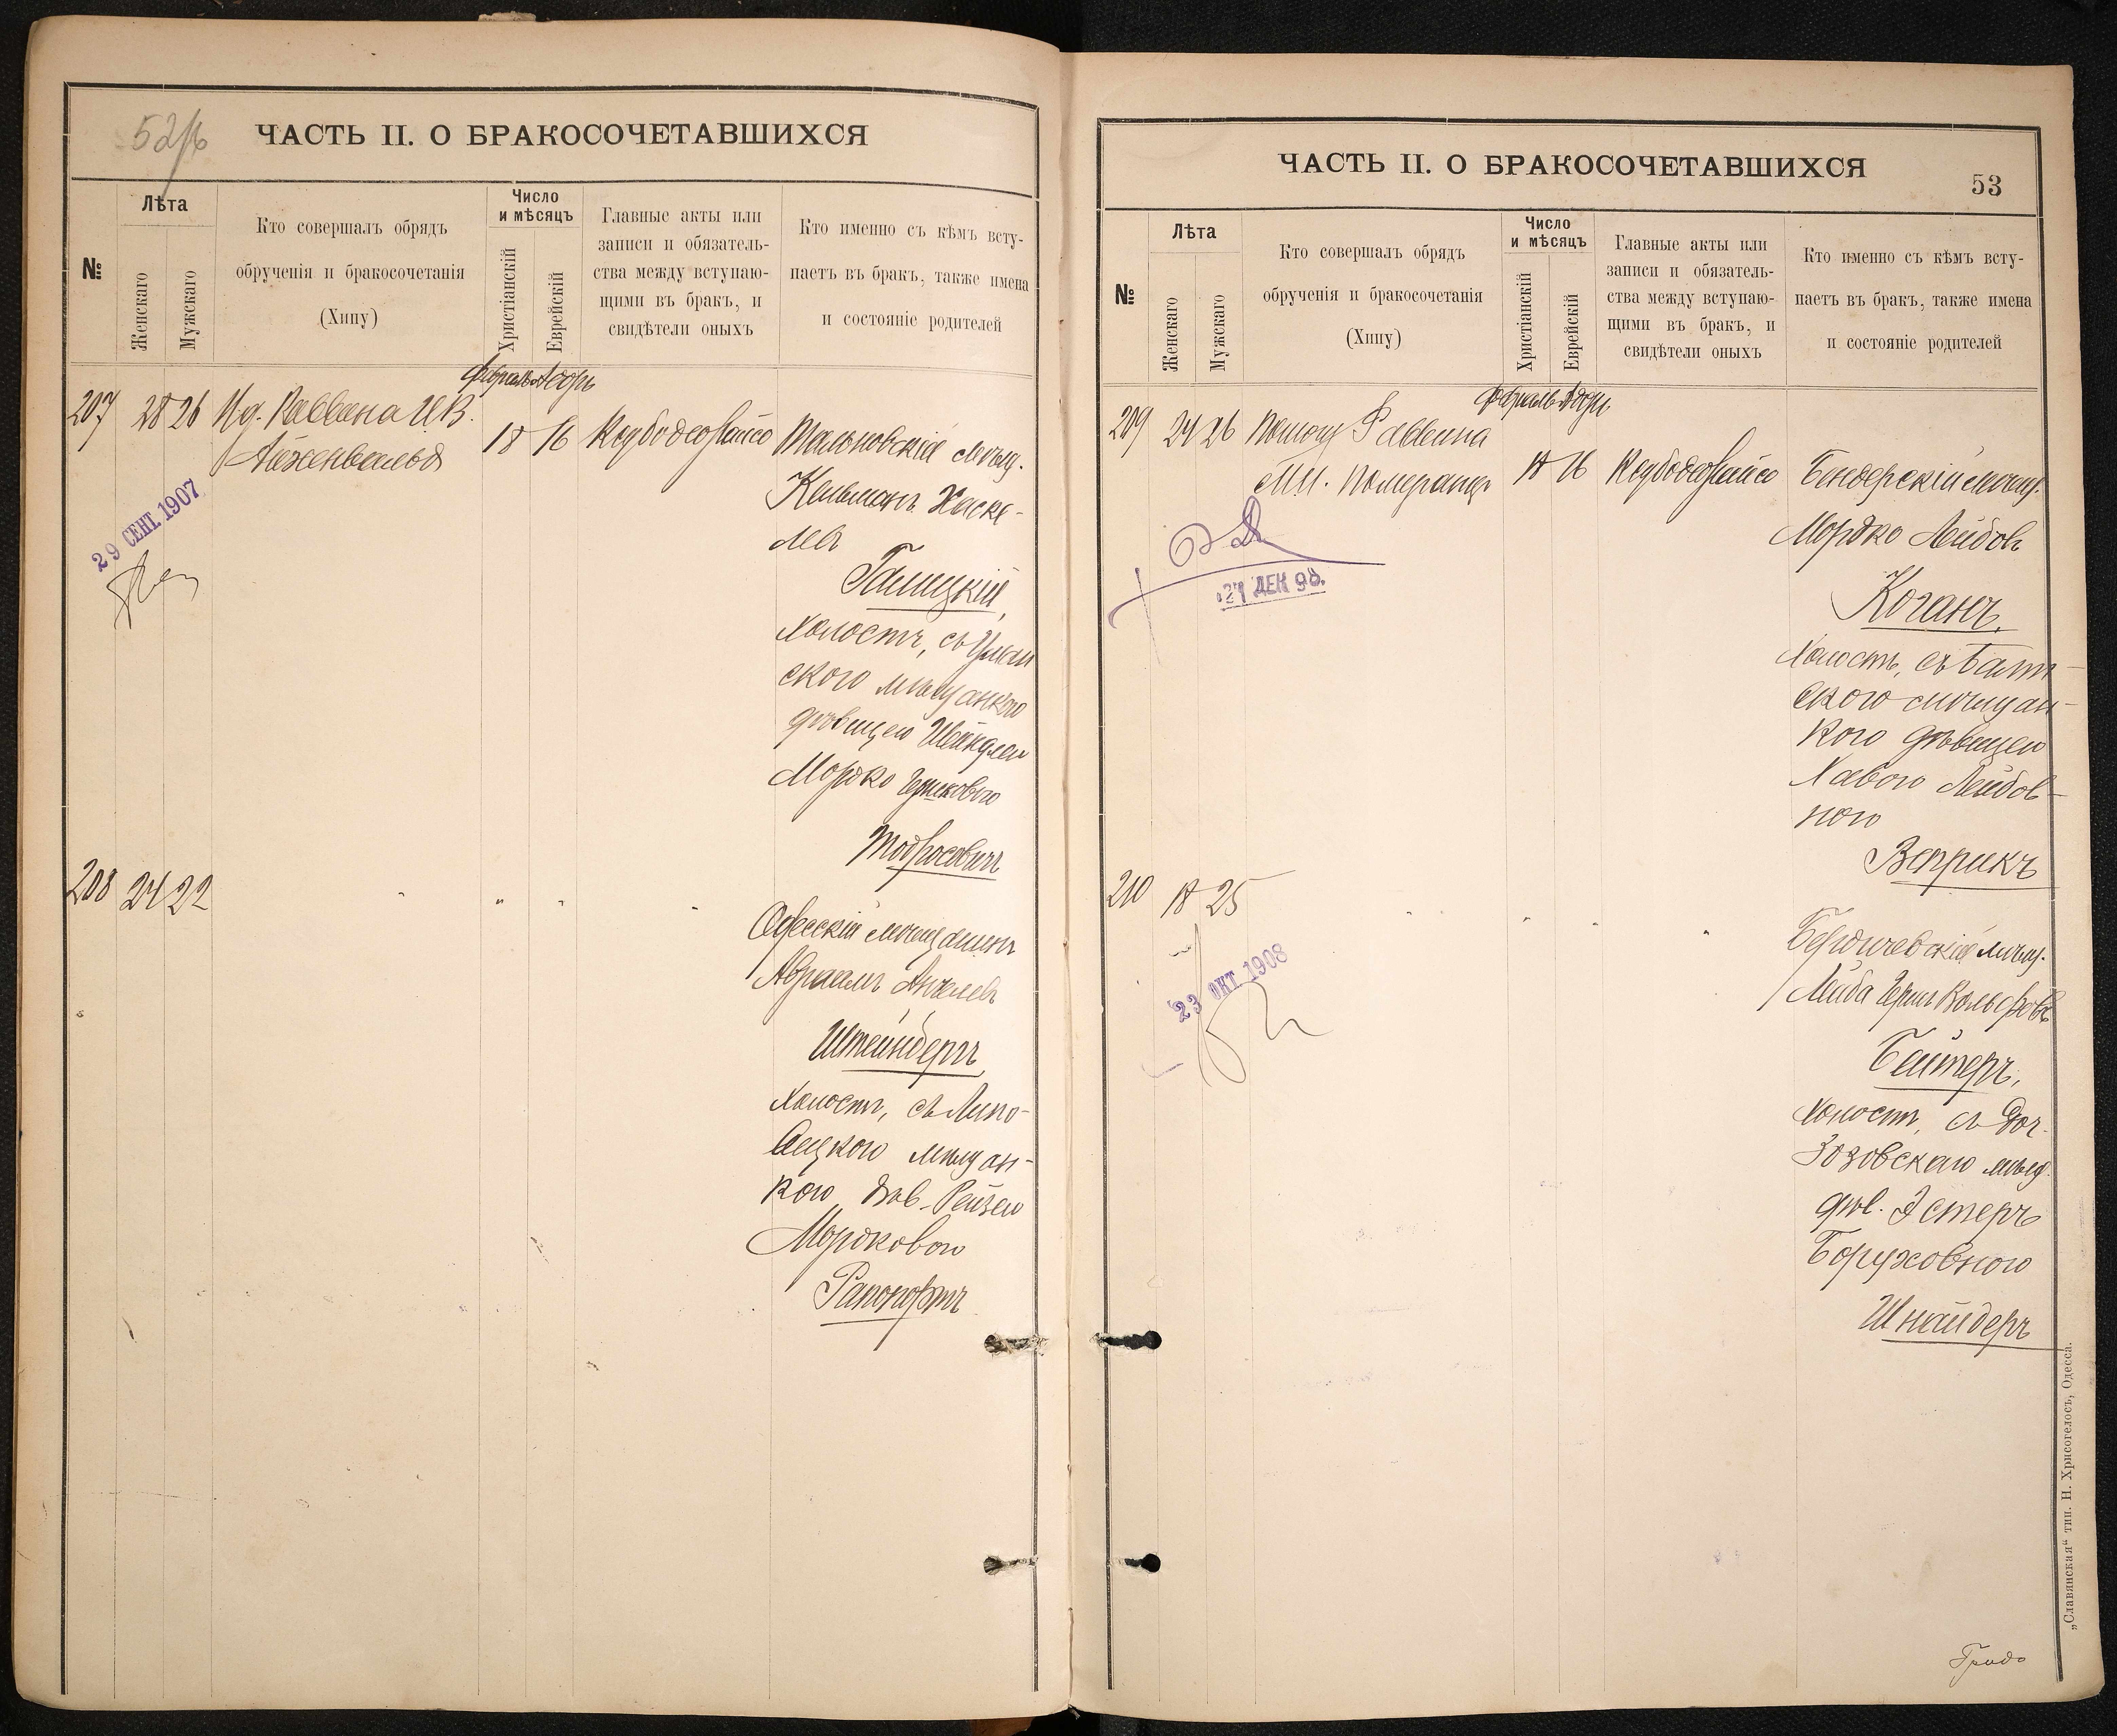 52/б
ЧАСТЬ II. О БРАКОСОЧЕТАВШИХСЯ
№
Лѣта
Женскаго
Мужскаго
Кто совершалъ обрядъ
обрученія и бракосочетанія
(Хипу)
Число
и мѣсяцъ
Христіанскій
Еврейскій
Главные акты или
записи и обязатель-
ства между вступаю-
щими въ бракъ, и
свидѣтели оныхъ
Кто именно съ кѣмъ всту-
паетъ въ бракъ, также имена
и состояніе родителей
Февраль Адоръ
207 28 26 Ид. Раввина И.В.
Айзенвальд
18 16
Тальновскій мѣщ.
Кельманъ Хаске-
лев
Галицкій,
холостъ, съ Уман
ского мѣщанкою
дѣвицею Шейндлею
Мордко Гершковою
Тодросовичъ
29 СЕНТ. 1907
208 24 22 " " " "
Одесскій мѣщанинъ
Авраамъ Анчелев
Штейнбергъ,
холостъ, съ Липо-
вецкого мѣщан-
кою дѣв. Рейзею
Мордковою
Рапопортъ
ЧАСТЬ II. О БРАКОСОЧЕТАВШИХСЯ
53
№
Лѣта
Женскаго
Мужскаго
Кто совершалъ обрядъ
обрученія и бракосочетанія
(Хипу)
Число
и мѣсяцъ
Христіанскій
Еврейскій
Главные акты или
записи и обязатель-
ства между вступаю-
щими въ бракъ, и
свидѣтели оныхъ
Кто именно съ кѣмъ всту-
паетъ въ бракъ, также имена
и состояніе родителей
Февраль Адоръ
209 24 26 Помощ. Раввина
М.И. Померанцъ
18 16
Бендерскій мѣщ.
Мордко Лейбовъ
Коганъ,
холостъ, съ Балт-
ского мѣщан-
кою дѣвицею
Хавою Лейбов-
ною
Веприкъ
27 ДЕК 98.
210 18 25 " " " "
Бердичевскій мѣщ.
Лейба Герш Вольфовъ
Бейтеръ,
холостъ, съ
дѣв. Эстеръ
Боруховною
Шнайдеръ
23 ОКТ. 1908
„Славянская“ тип. Н. Хрисогелосъ, Одесса.